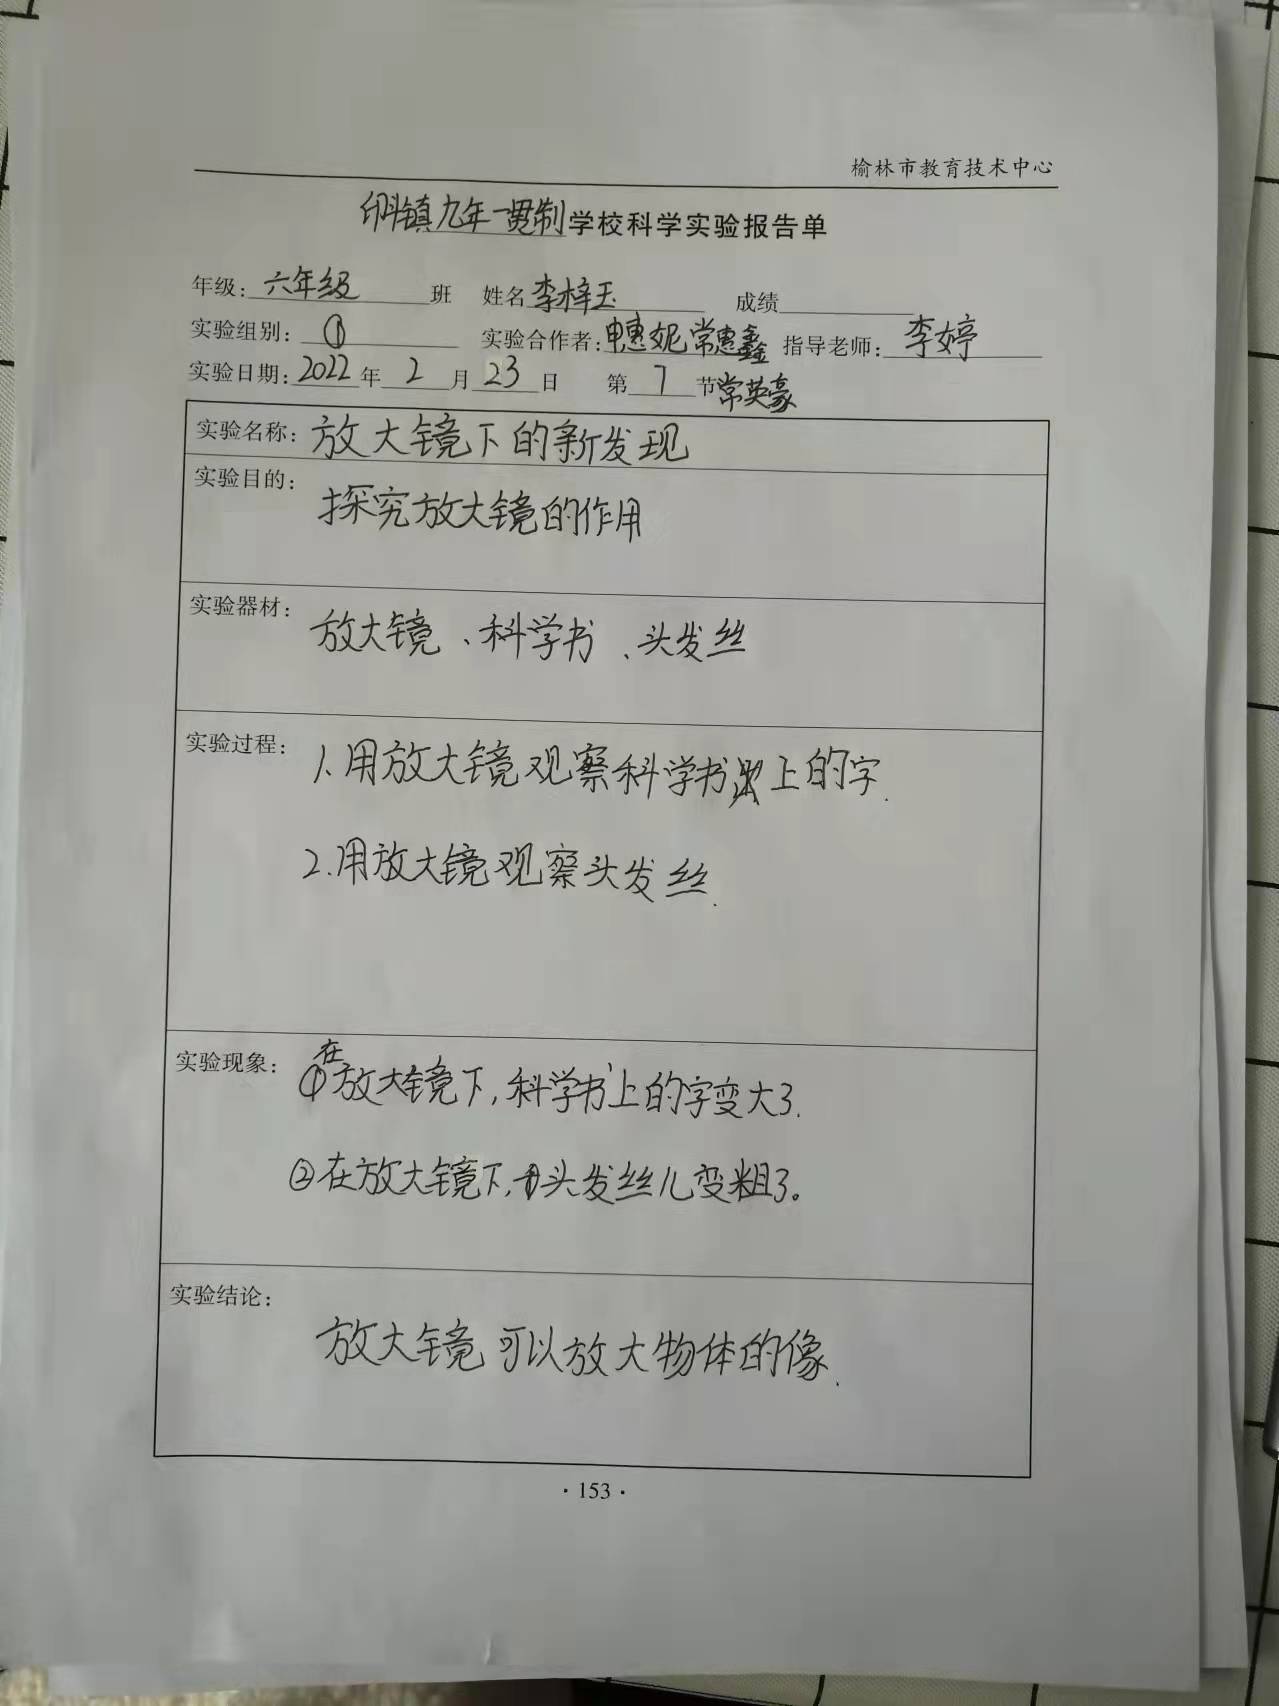 榆林市教育技术中心
印斗镇九年一贯制学校科学实验报告单
年级:六年级班 姓名李梓玉 成绩
实验组别:① 实验合作者:申惠妮常惠鑫 指导老师:李婷
实验日期:2022年2月23日 第7节常英豪
实验名称:放大镜下的新发现
实验目的:探究放大镜的作用
实验器材:放大镜、科学书、头发丝
实验过程:1.用放大镜观察科学书上的字.
2.用放大镜观察头发丝.
实验现象:①在放大镜下,科学书上的字变大了.
②在放大镜下,头发丝儿变粗了。
实验结论:
放大镜可以放大物体的像.
·153·